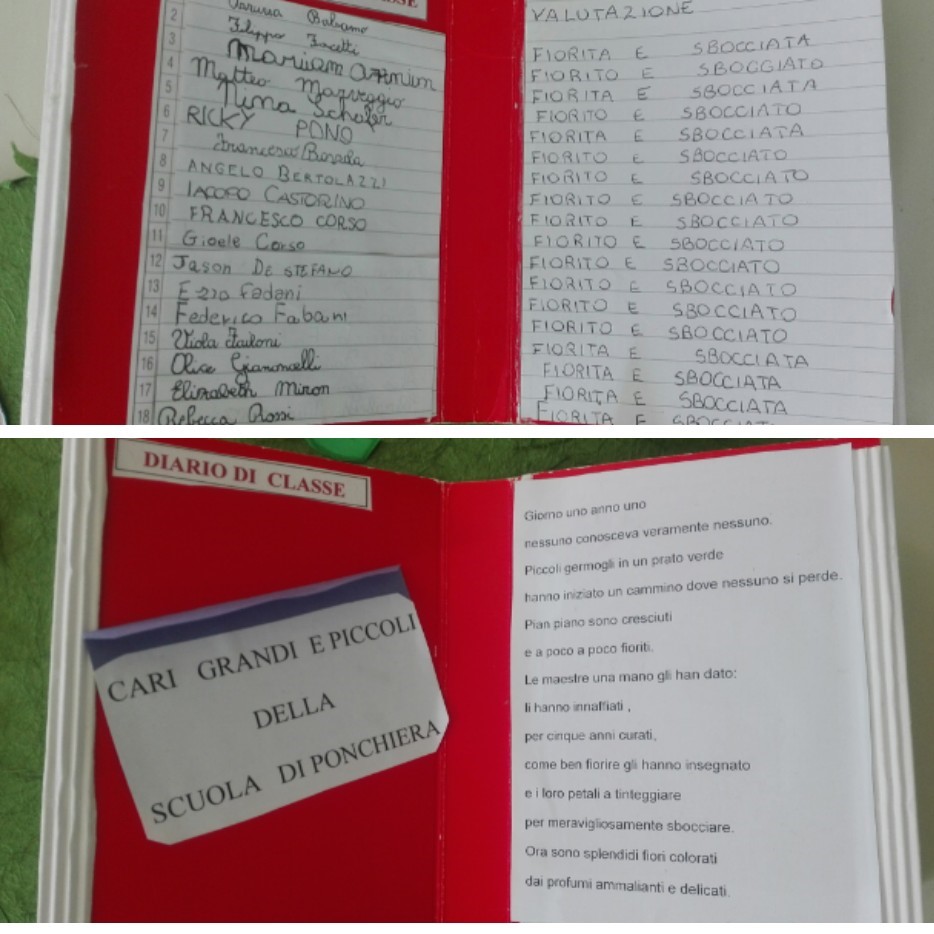 VALUTAZIONE
2
Balsamo
3
Filippo Facetti
4
Mariam
5
Matteo
6
Nina Schafer
7
RICKY PONO
8
Francesca
9
ANGELO BERTOLAZZI
10
IACOPO CASTORINO
11
FRANCESCO CORSO
12
Gioele Corso
13
Jason DE STEFANO
14
Ezio Fadani
15
Federico Fabani
16
Viola
17
18
Elizabeth Miron
Rebecca Rossi
FIORITA E SBOCCIATA
FIORITO E SBOCCIATO
FIORITA E SBOCCIATA
FIORITO E SBOCCIATO
FIORITA E SBOCCIATA
FIORITO E SBOCCIATO
FIORITO E SBOCCIATO
FIORITO E SBOCCIATO
FIORITO E SBOCCIATO
FIORITO E SBOCCIATO
FIORITO E SBOCCIATO
FIORITO E SBOCCIATO
FIORITO E SBOCCIATO
FIORITO E SBOCCIATO
FIORITA E SBOCCIATA
FIORITA E SBOCCIATA
FIORITA E SBOCCIATA
FIORITA E
DIARIO DI CLASSE
CARI GRANDI E PICCOLI
DELLA
SCUOLA DI PONCHIERA
Giorno uno anno uno
nessuno conosceva veramente nessuno.
Piccoli germogli in un prato verde
hanno iniziato un cammino dove nessuno si perde.
Pian piano sono cresciuti
e a poco a poco fioriti.
Le maestre una mano gli han dato:
li hanno innaffiati ,
per cinque anni curati,
come ben fiorire gli hanno insegnato
e i loro petali a tinteggiare
per meravigliosamente sbocciare.
Ora sono splendidi fiori colorati
dai profumi ammalianti e delicati.